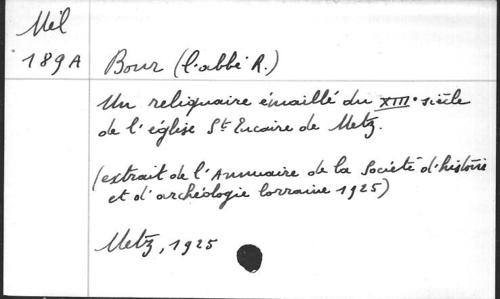 Mél
189A Bour (l'abbé R.)
Un reliquaire émaillé du XIIIe siècle
de l'église St Eucaire de Metz.
(extrait de l'Annuaire de la Société d'histoire
et d'archéologie lorraine 1925)
Metz, 1925